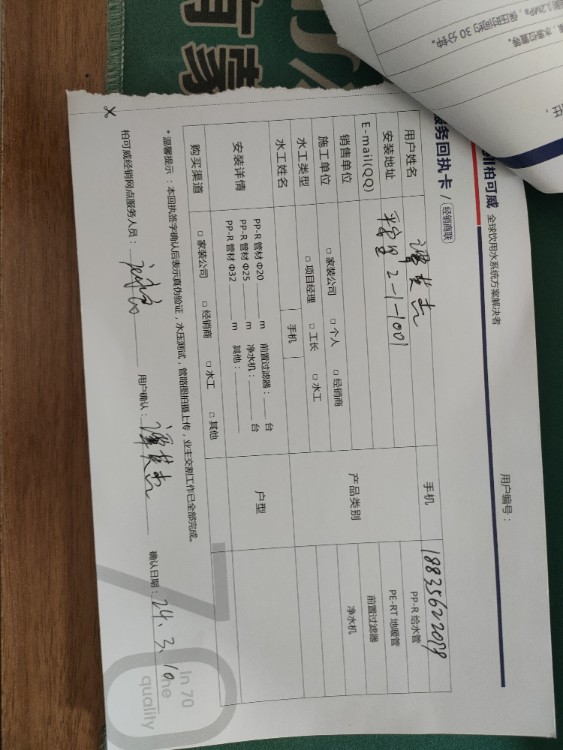 柏可威 全球饮用水系统方案解决者
用户编号：
服务回执卡 / 经销商联
用户姓名 手机 18835622079
安装地址 2-1-1001
产品类别 PP-R 给水管
PE-RT 地暖管
前置过滤器
净水机
E-mail(QQ)
销售单位 □ 家装公司 □ 个人 □ 经销商
施工单位
水工类型 □ 项目经理 □ 工长 □ 水工
水工姓名 手机
安装详情 PP-R 管材 Φ20 m 前置过滤器： 台
PP-R 管材 Φ25 m 净水机： 台
PP-R 管材 Φ32 m 其他：
户型
购买渠道 □ 家装公司 □ 经销商 □ 水工 □ 其他
*温馨提示：本回执签字确认后表示真伪验证，水压测试，管路图拍摄上传，业主交割工作已全部完成。
柏可威经销网点服务人员： 用户确认： 确认日期：24.3.10
70
in 70
ne
quality
保压时间约 30 分钟。